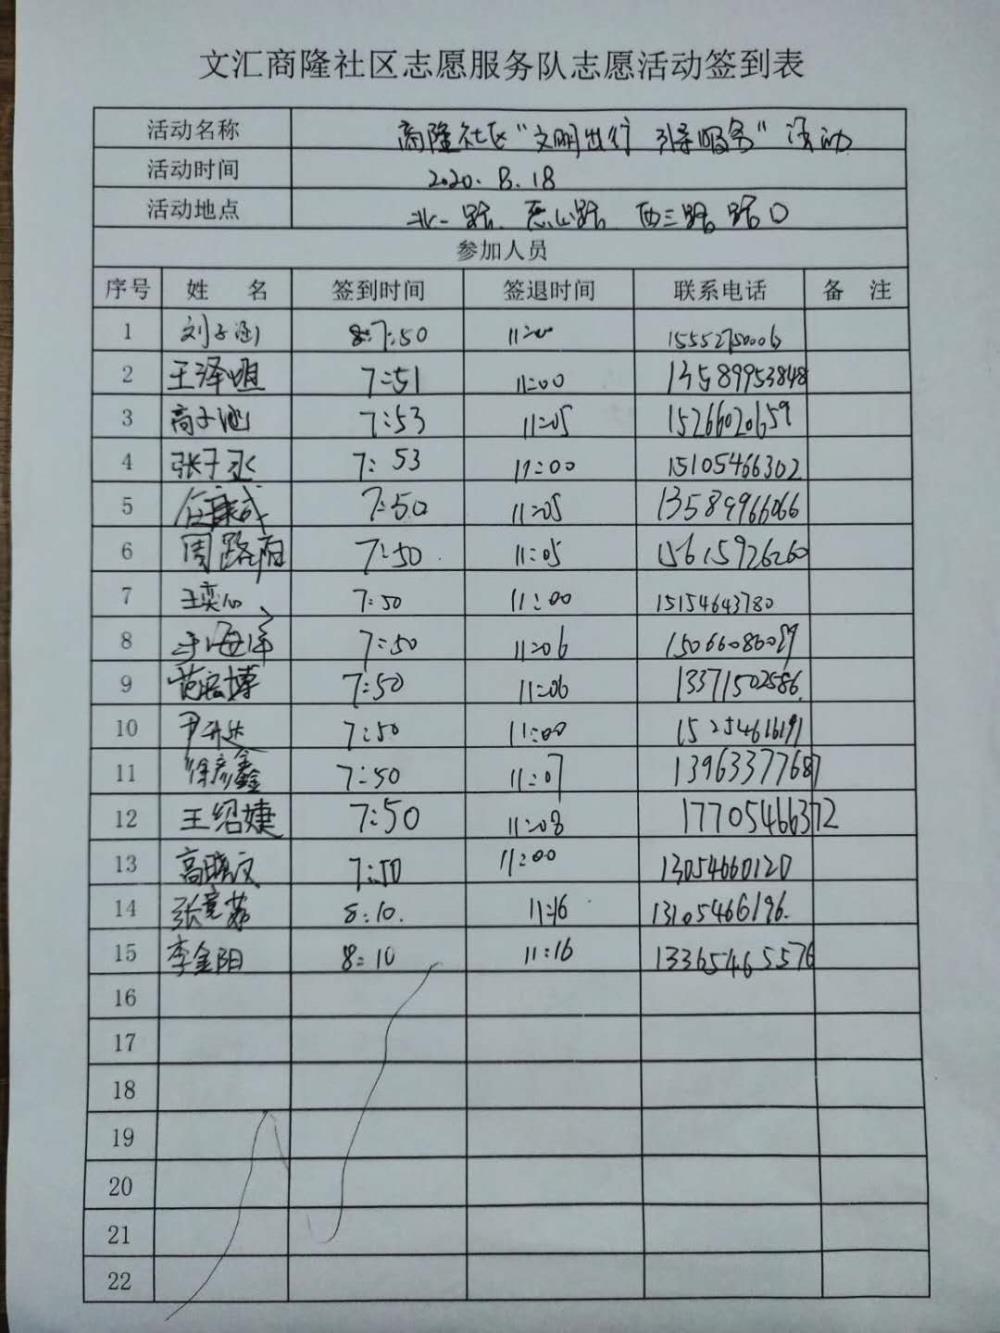 文汇商隆社区志愿服务队志愿活动签到表
活动名称 商隆社区“文明出行 引导服务”活动
活动时间 2020.8.18
活动地点 北一路 西三路 路口
参加人员
序号 姓 名 签到时间 签退时间 联系电话 备 注
1 刘子涵 7:50 11:00 15552750006
2 王泽 7:51 11:00 13589953848
3 高子涵 7:53 11:05 15266020659
4 张子丞 7:53 11:00 15105466302
5 7:50 11:05 13589966066
6 周路 7:50 11:05 15615926260
7 王奕 7:50 11:00 15154643780
8 于海洋 7:50 11:06
9 范宏博 7:50 11:06 13371502586
10 尹升达 7:50 11:00 15254616191
11 徐彦鑫 7:50 11:07 13963377687
12 王绍婕 7:50 11:08 17705466372
13 高晓文 7:50 11:00 13054660120
14 张 8:10. 11:16 13105466196.
15 李金阳 8:10 11:16 13365465576
16
17
18
19
20
21
22